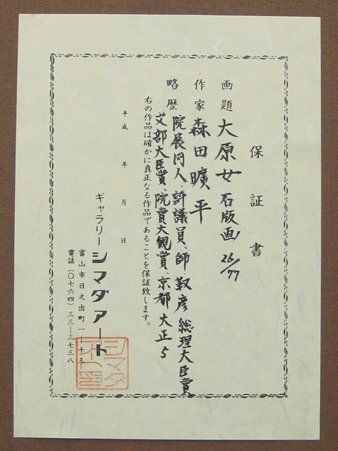 保証書
画題 大原女 石版画 26/77
作家 森田曠平
略歴 院展同人 評議員、師 靫彦 総理大臣賞
文部大臣賞、院賞大観賞、京都 大正5
右の作品は確かに真正なる作品であることを保証致します。
平成 年 月 日
ギャラリー シマダアート
富山市日之出町一-十三
電話(〇七六四)三三-三七三八